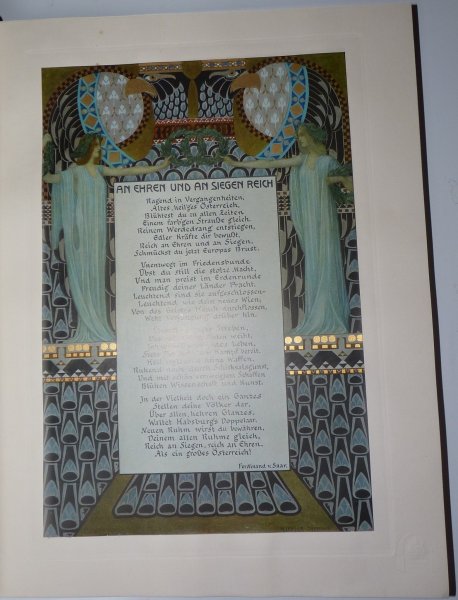 AN EHREN UND AN SIEGEN REICH
Ragend in Vergangenheiten,
Altes, heil'ges Österreich,
Blühtest du zu allen Zeiten
Einem farbgen Strauße gleich.
Reinem Werdedrang entstiegen,
Edler Kräfte dir bewußt,
Reich an Ehren und an Siegen,
Schmückst du jetzt Europas Brust.
Unentwegt im Friedensbunde
Übst du still die stolze Macht,
Und man preist im Erdenrunde
Freudig deiner Länder Pracht,
Leuchtend sind sie aufgeschlossen
Leuchtend wie dein neues Wien,
Von des Geistes Hauch durchflossen,
Weht
Streben,
weiht,
Leben,
Kampf bereit.
Waffen,
Ruhend
Und mit schön vereinigtem Schaffen
Blühen Wissenschaft und Kunst.
In der Vielheit doch ein Ganzes
Stellen deine Völker dar,
Über allen, hehren Glanzes,
Waltet Habsburg's Doppelaar.
Neuen Ruhm wirst du bewahren,
Deinem alten Ruhme gleich,
Reich an Siegen, reich an Ehren,
Als ein großes Österreich!
Ferdinand v. Saar.